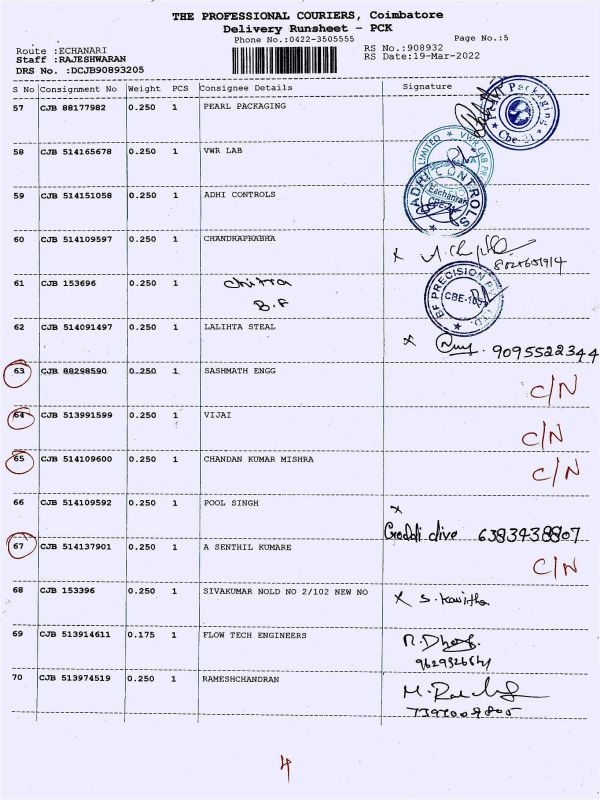 THE PROFESSIONAL COURIERS, Coimbatore
Delivery Runsheet - PCK
Phone No.:0422-3505555
Page No.:5
Route :ECHANARI
RS No.:908932
Staff :RAJESHWARAN
RS Date:19-Mar-2022
DRS No. :DCJB90893205
S No Consignment No Weight PCS Consignee Details Signature
57 CJB 88177982 0.250 1 PEARL PACKAGING
Packaging
Cbe-21
58 CJB 514165678 0.250 1 VWR LAB
LIMITED VWR LAB
59 CJB 514151058 0.250 1 ADHI CONTROLS
ADHI CONTROLS
Eachanari
60 CJB 514109597 0.250 1 CHANDRAPRABHA
x
61 CJB 153696 0.250 1 Chitra
B.F
PRECISION
62 CJB 514091497 0.250 1 LALIHTA STEAL
x 9095522344
63 CJB 88298590 0.250 1 SASHMATH ENGG C/N
64 CJB 513991599 0.250 1 VIJAI C/N
65 CJB 514109600 0.250 1 CHANDAN KUMAR MISHRA C/N
66 CJB 514109592 0.250 1 POOL SINGH x
6383438807
67 CJB 514137901 0.250 1 A SENTHIL KUMARE C/N
68 CJB 153396 0.250 1 SIVAKUMAR NOLD NO 2/102 NEW NO x S. Kavitha
69 CJB 513914611 0.175 1 FLOW TECH ENGINEERS
70 CJB 513974519 0.250 1 RAMESHCHANDRAN
4